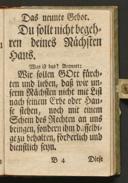 Das neunte Gebot.
Du sollt nicht begeh-
ren deines Nächsten
Haus.
Was ist das? Antwort:
Wir sollen GOtt fürch-
ten und lieben, daß wir un-
serm Nächsten nicht mit List
nach seinem Erbe oder Hau-
se stehen, noch mit einem
Schein des Rechten an uns
bringen, sondern ihm dasselbi-
ge zu behalten, förderlich und
dienstlich seyn.
B 4 Diese